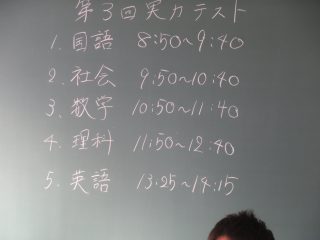 第3回実力テスト
1. 国語 8:50~9:40
2. 社会 9:50~10:40
3. 数学 10:50~11:40
4. 理科 11:50~12:40
5. 英語 13:25~14:15